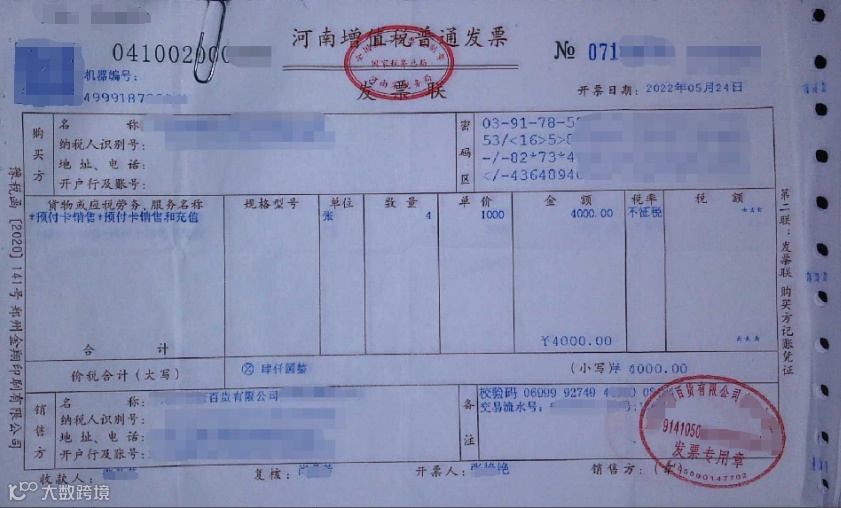 041002000
河南增值税普通发票
国家税务总局
发票联
№ 071
机器编号：
49991872
开票日期：2022年05月24日
购买方
名 称：
纳税人识别号：
地址、电话：
开户行及账号：
密码区
03-91-78-5
53/<16>5>8
-/-82*73*4
</-4364894
货物或应税劳务、服务名称 规格型号 单位 数量 单价 金额 税率 税额
*预付卡销售*预付卡销售和充值 张 4 1000 4000.00 不征税 ***
合计 ¥4000.00 ***
价税合计（大写） ⊗ 肆仟圆整 （小写）¥ 4000.00
销售方
名 称： 百货有限公司
纳税人识别号：
地址、电话：
开户行及账号：
备注
校验码 06999 92749
交易流水号：
百货有限公司
9141050
发票专用章
收款人： 复核： 开票人： 艳 销售方：（章）
第二联：发票联 购买方记账凭证
豫税函〔2020〕141号 郑州金翔印刷有限公司
大数跨境